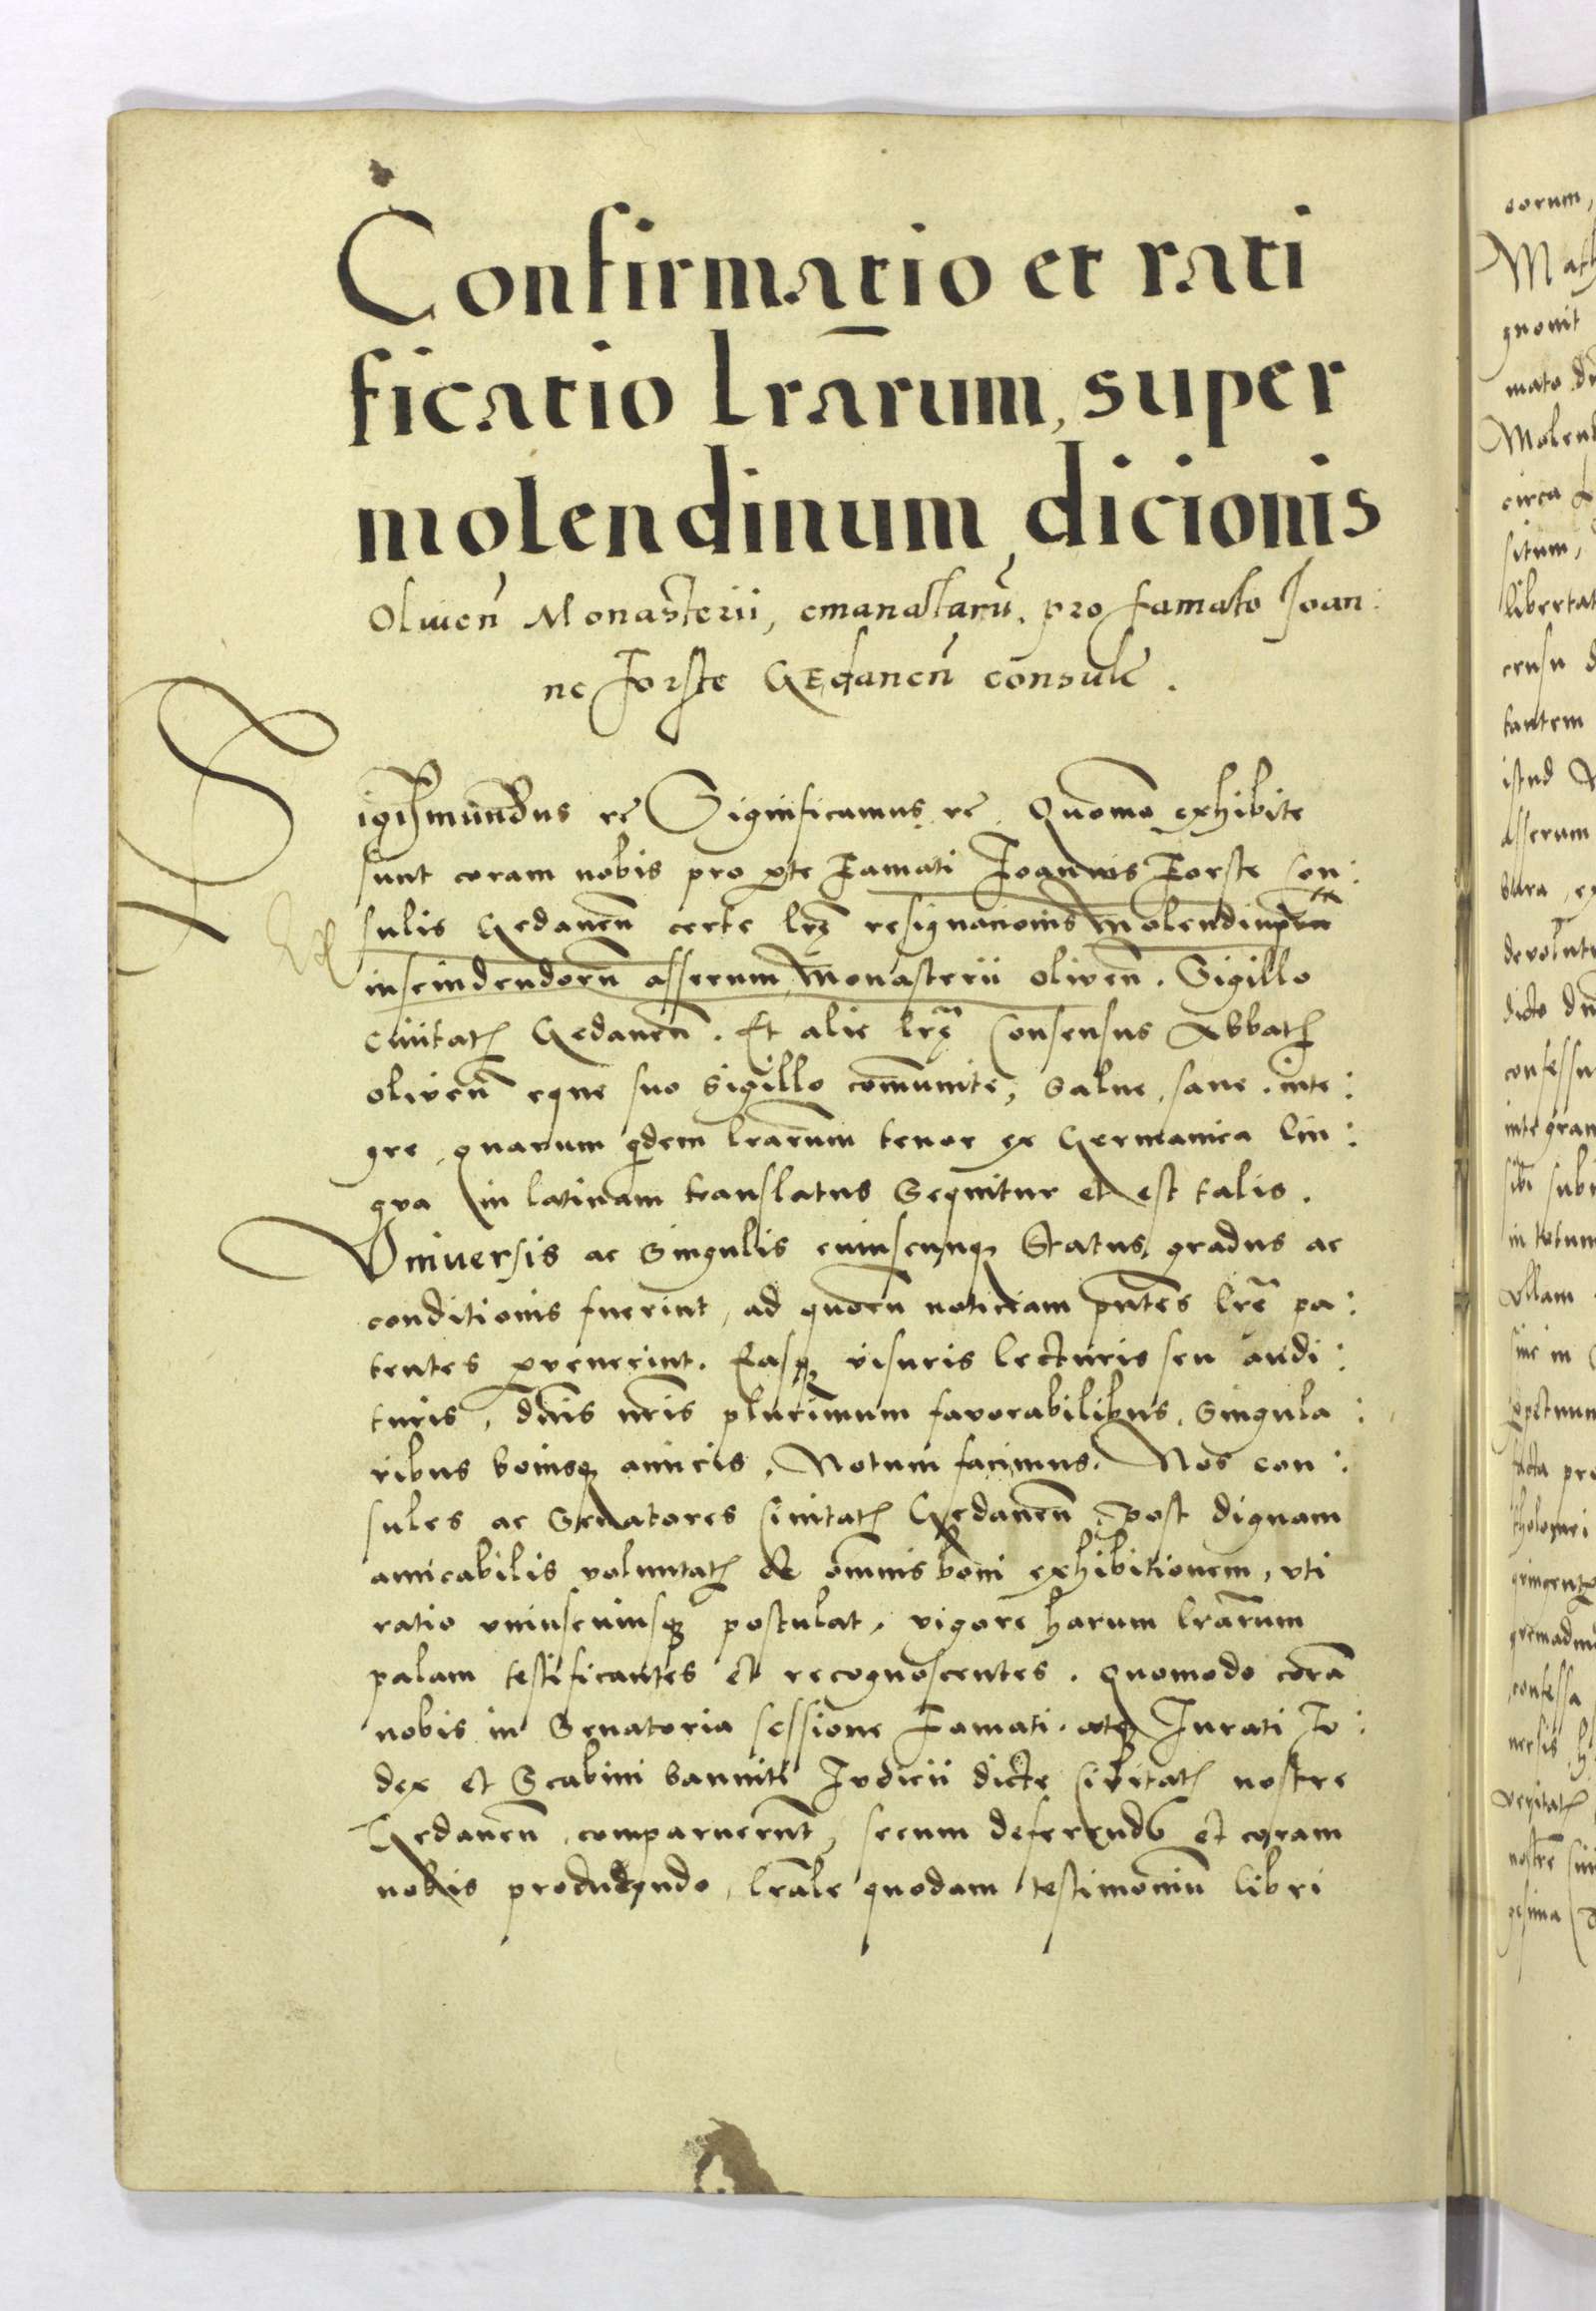 Confirmatio et rati
ficatio lr̄arum, super
molendinum dicionis
Oliueñ Monasterii, emanatarū, pro famato Joan:
ne Forste Gedaneñ consule.
Sigismundus ꝛc Significamus ꝛc. Quomō exhibite
sunt coram nobis pro ꝑte Famati Joannis Forste Con:
sulis Gedaneñ certe lrę resignacionis Molendini
inscindendorū asserum Monasterii oliveñ. Sigillo
Ciuitatꝭ Gedaneñ. Et alie lrę Consensus Abbatꝭ
oliveñ eque suo Sigillo com̄unite, Salue, sane. inte:
gre, quarum qͥdem lrarum tenor ex Germanica lin:
gva in latinam translatus Sequitur et est talis.
Vniuersis ac Singulis cuiuscunqꝫ Status, gradus ac
conditionis fuerint, ad quorū noticiam pn̄tes lrē pa:
tentes ꝑvenerint. Easqꝫ visuris lecturis seu audi:
turis, dn̄is nr̄is plurimum favorabilibus, Singula:
ribus bonisqꝫ amicis. Notum facimus. Nos con:
sules ac Senatores Ciuitatꝭ Gedaneñ, post dignam
amicabilis voluntatꝭ et omnis boni exhibitionem, vti
ratio vniuscuiusqꝫ postulat, vigore harum lrārum
palam testificantes et recognoscentes. quomodo corā
nobis in Senatoria sessione Famati. atqꝫ Jurati Ju:
dex et Scabini banniti Judicii dicte Civitatꝭ nostre
Gedaneñ, comparuerūt, secum deferendo et coram
nobis producendo, lrāle quodam testimoniū libri
eorum,
Math
gnouit
mato
Molend
circa
situm,
libertat
censu d
tantem
istud
asserum
devolut
dicto
confessu
integram
sibi subi
in totum
Ullam
siue in
facta pro
confessa
veritatꝭ